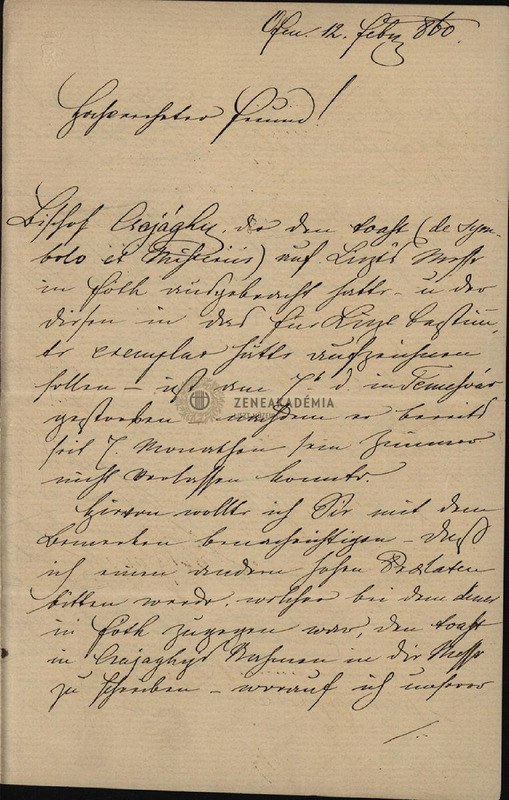 Ofen. 12. Febr 860.
Hochverehrter Freund!
Bischof Csajághy, der den toast (de sym-
bolo et Misteriis) auf Liszts Messe
in Fóth ausgebracht hatte – u der
diesen in das für Liszt bestim̅-
te exemplar hätte aufzeichnen
sollen – ist am 7t d. in Temesvár
gestorben nachdem er bereits
seit 7. Monathen sein Zimmer
nicht verlassen konnte.
Hievon wollte ich Sie mit dem
Bemerken benachrichtigen – daß
ich einen andern hohen Prälaten
bitten werde, welcher bei dem diner
in Fóth zugegen war, den toast
in Csajághys Nahmen in die Messe
zu schreiben – worauf ich unserer
./.
ZENEAKADÉMIA